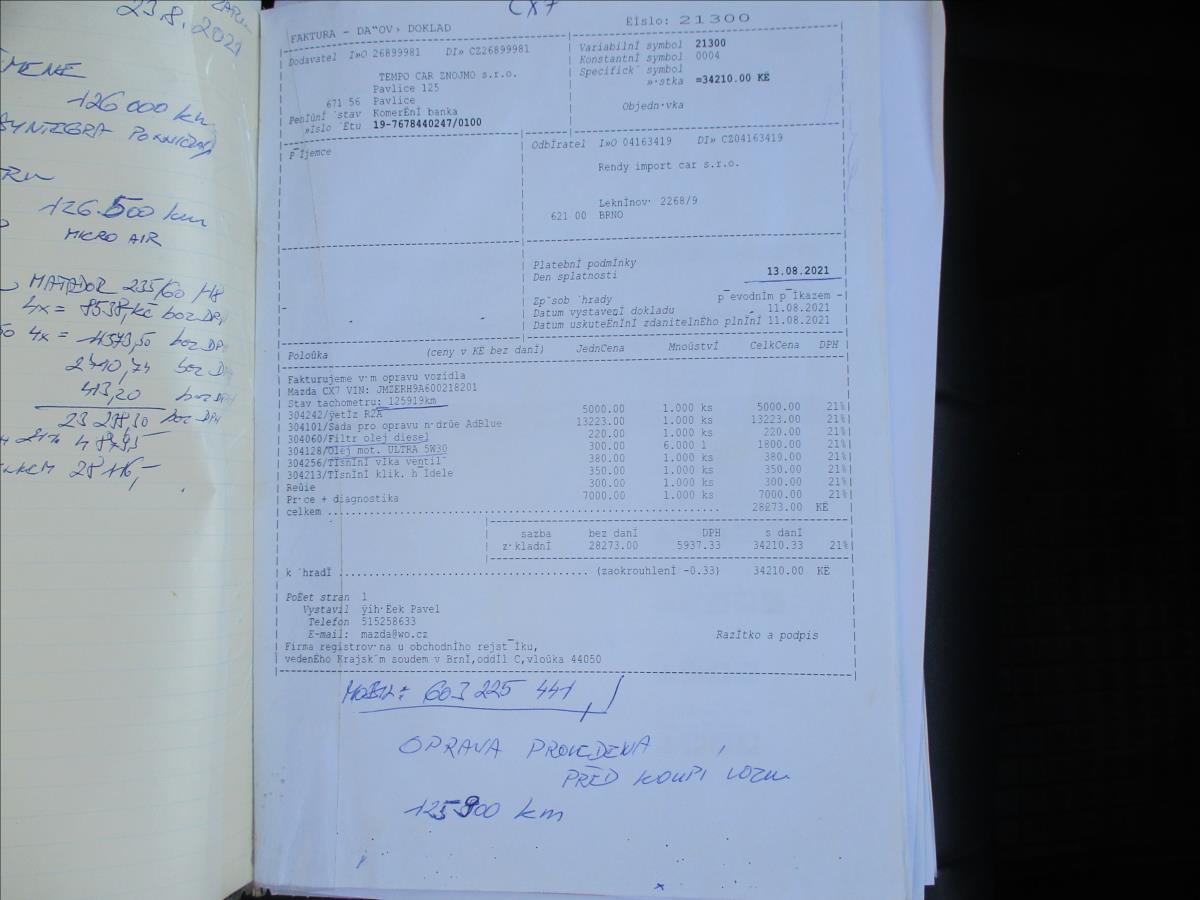 23.8.2021
126 000 km
126.500 km
MICRO AIR
MATADOR 235/60
4x = 8538,- Kč bez DPH
4x =
2410,74 bez D
413,20 bez DPH
23 298,30 bez DPH
28 116,-
CX7
FAKTURA - DA"OV› DOKLAD
Eíslo: 21300
Dodavatel I»O 26899981 DI» CZ26899981
TEMPO CAR ZNOJMO s.r.o.
Pavlice 125
671 56 Pavlice
PenÍûní ´stav KomerEní banka
»íslo ´Etu 19-7678440247/0100
Variabilní symbol 21300
Konstantní symbol 0004
Specifick´ symbol
»·stka =34210.00 KE
Objedn·vka
p¯íjemce
Odbíratel I»O 04163419 DI» CZ04163419
Rendy import car s.r.o.
Leknínov· 2268/9
621 00 BRNO
Platební podmínky
Den splatnosti 13.08.2021
Zp˘sob ˙hrady p¯evodním p¯íkazem -
Datum vystavení dokladu 11.08.2021
Datum uskuteEnÍní zdanitelnÉho plnÍní 11.08.2021
Poloûka (ceny v KE bez daní) JednCena Mnoûství CelkCena DPH
Fakturujeme v·m opravu vozidla
Mazda CX7 VIN: JMZERH9A600218201
Stav tachometru: 125919km
304242/ÿetíz R2A 5000.00 1.000 ks 5000.00 21%
304101/Sada pro opravu n·drûe AdBlue 13223.00 1.000 ks 13223.00 21%
304060/Filtr olej diesel 220.00 1.000 ks 220.00 21%
304128/Olej mot. ULTRA 5W30 300.00 6.000 l 1800.00 21%
304256/TÍsnÍní víka ventil˘ 380.00 1.000 ks 380.00 21%
304213/TÍsnÍní klik. h¯ídele 350.00 1.000 ks 350.00 21%
Reûie 300.00 1.000 ks 300.00 21%
Pr·ce + diagnostika 7000.00 1.000 ks 7000.00 21%
celkem 28273.00 KE
sazba bez daní DPH s daní
z·kladní 28273.00 5937.33 34210.33 21%
k ˙hradÍ (zaokrouhlení -0.33) 34210.00 KE
PoEet stran 1
Vystavil ÿíh·Eek Pavel
Telefon 515258633
E-mail: mazda@wo.cz
Razítko a podpis
Firma registrov·na u obchodního rejst¯íku,
vedenÉho Krajsk˝m soudem v BrnÍ,oddíl C,vloûka 44050
MOBIL: 603 225 441
OPRAVA PROVEDENA
PŘED KOUPÍ VOZU
125900 km